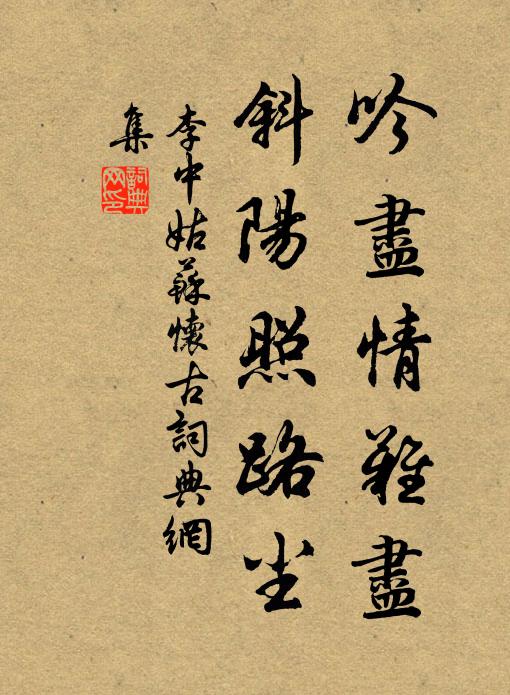 吟盡情難盡
斜陽照路尘
李中姑蘇懷古詞典網
集
詞典
网印